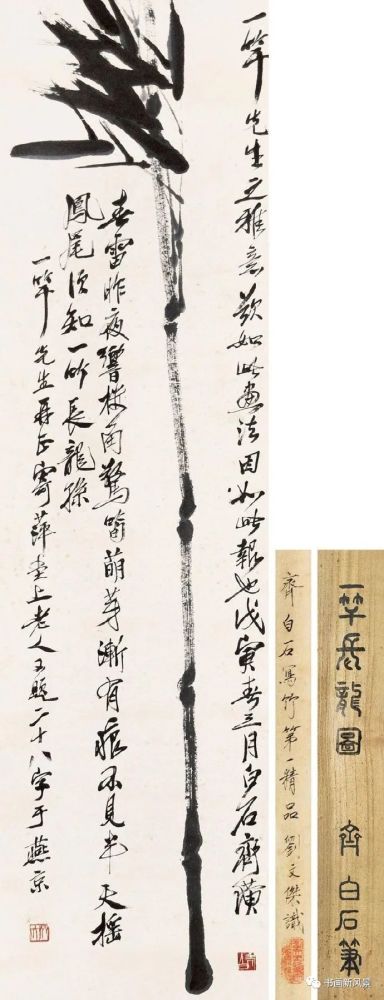 一竿先生之雅意欲如此畫法因以此報也戊寅春三月白石齊璜
春雷昨夜響角驚筍萌芽漸有痕不見半天搖
鳳尾須知一昨長龍孫
一竿先生再正寄萍堂上老人又題二十八字于燕京
一竿長龍圖 齊白石筆
齊白石寫竹第一精品 劉文傑識
书画新风景